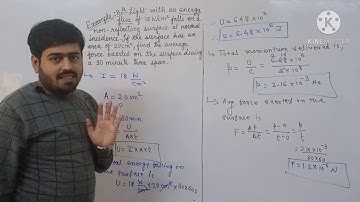 Example:- 8.4 Light with an energy
flux of 18 W/cm² falls on a
non-reflecting surface at normal
incidence. If the surface has an
area of 20cm², find the average
force exerted on the surface during
a 30 minute time span.
I = 18 W/cm²
A = 20 cm²
U = I x A x t
energy falling on
surface is
U = 18 W/cm² x 20 cm² x 30x60s
U = 6.48 x 10⁵
U = 6.48 x 10⁵ J
Total momentum delivered is,
p = U/C
p = 2.16 x 10⁻³ Ns
Avg. force exerted on the
surface is
F = Δp/Δt = p-0/t-0 = p/t
= 2.16 x 10⁻³/30x60
F = 1.2 x 10⁻⁶ N
KINEMASTER